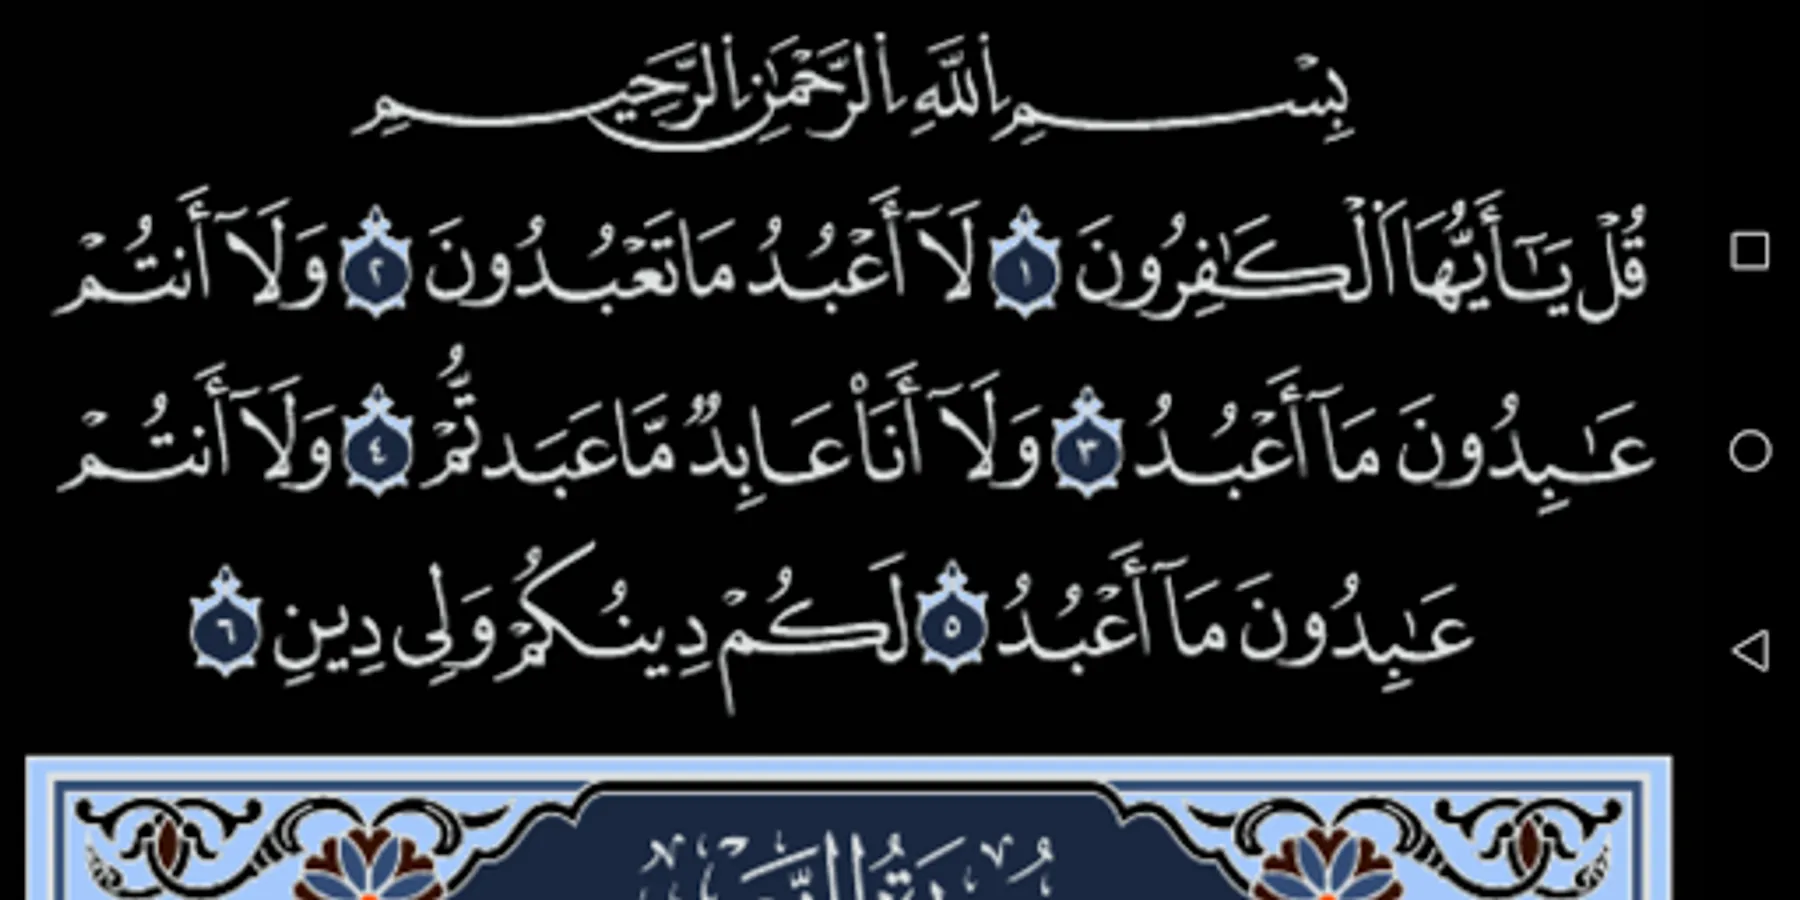 بِسْمِ ٱللَّهِ ٱلرَّحْمَٰنِ ٱلرَّحِيمِ
قُلْ يَـٰٓأَيُّهَا ٱلْكَـٰفِرُونَ ١ لَآ أَعْبُدُ مَا تَعْبُدُونَ ٢ وَلَآ أَنتُمْ
عَـٰبِدُونَ مَآ أَعْبُدُ ٣ وَلَآ أَنَا۠ عَابِدٌ مَّا عَبَدتُّمْ ٤ وَلَآ أَنتُمْ
عَـٰبِدُونَ مَآ أَعْبُدُ ٥ لَكُمْ دِينُكُمْ وَلِىَ دِينِ ٦